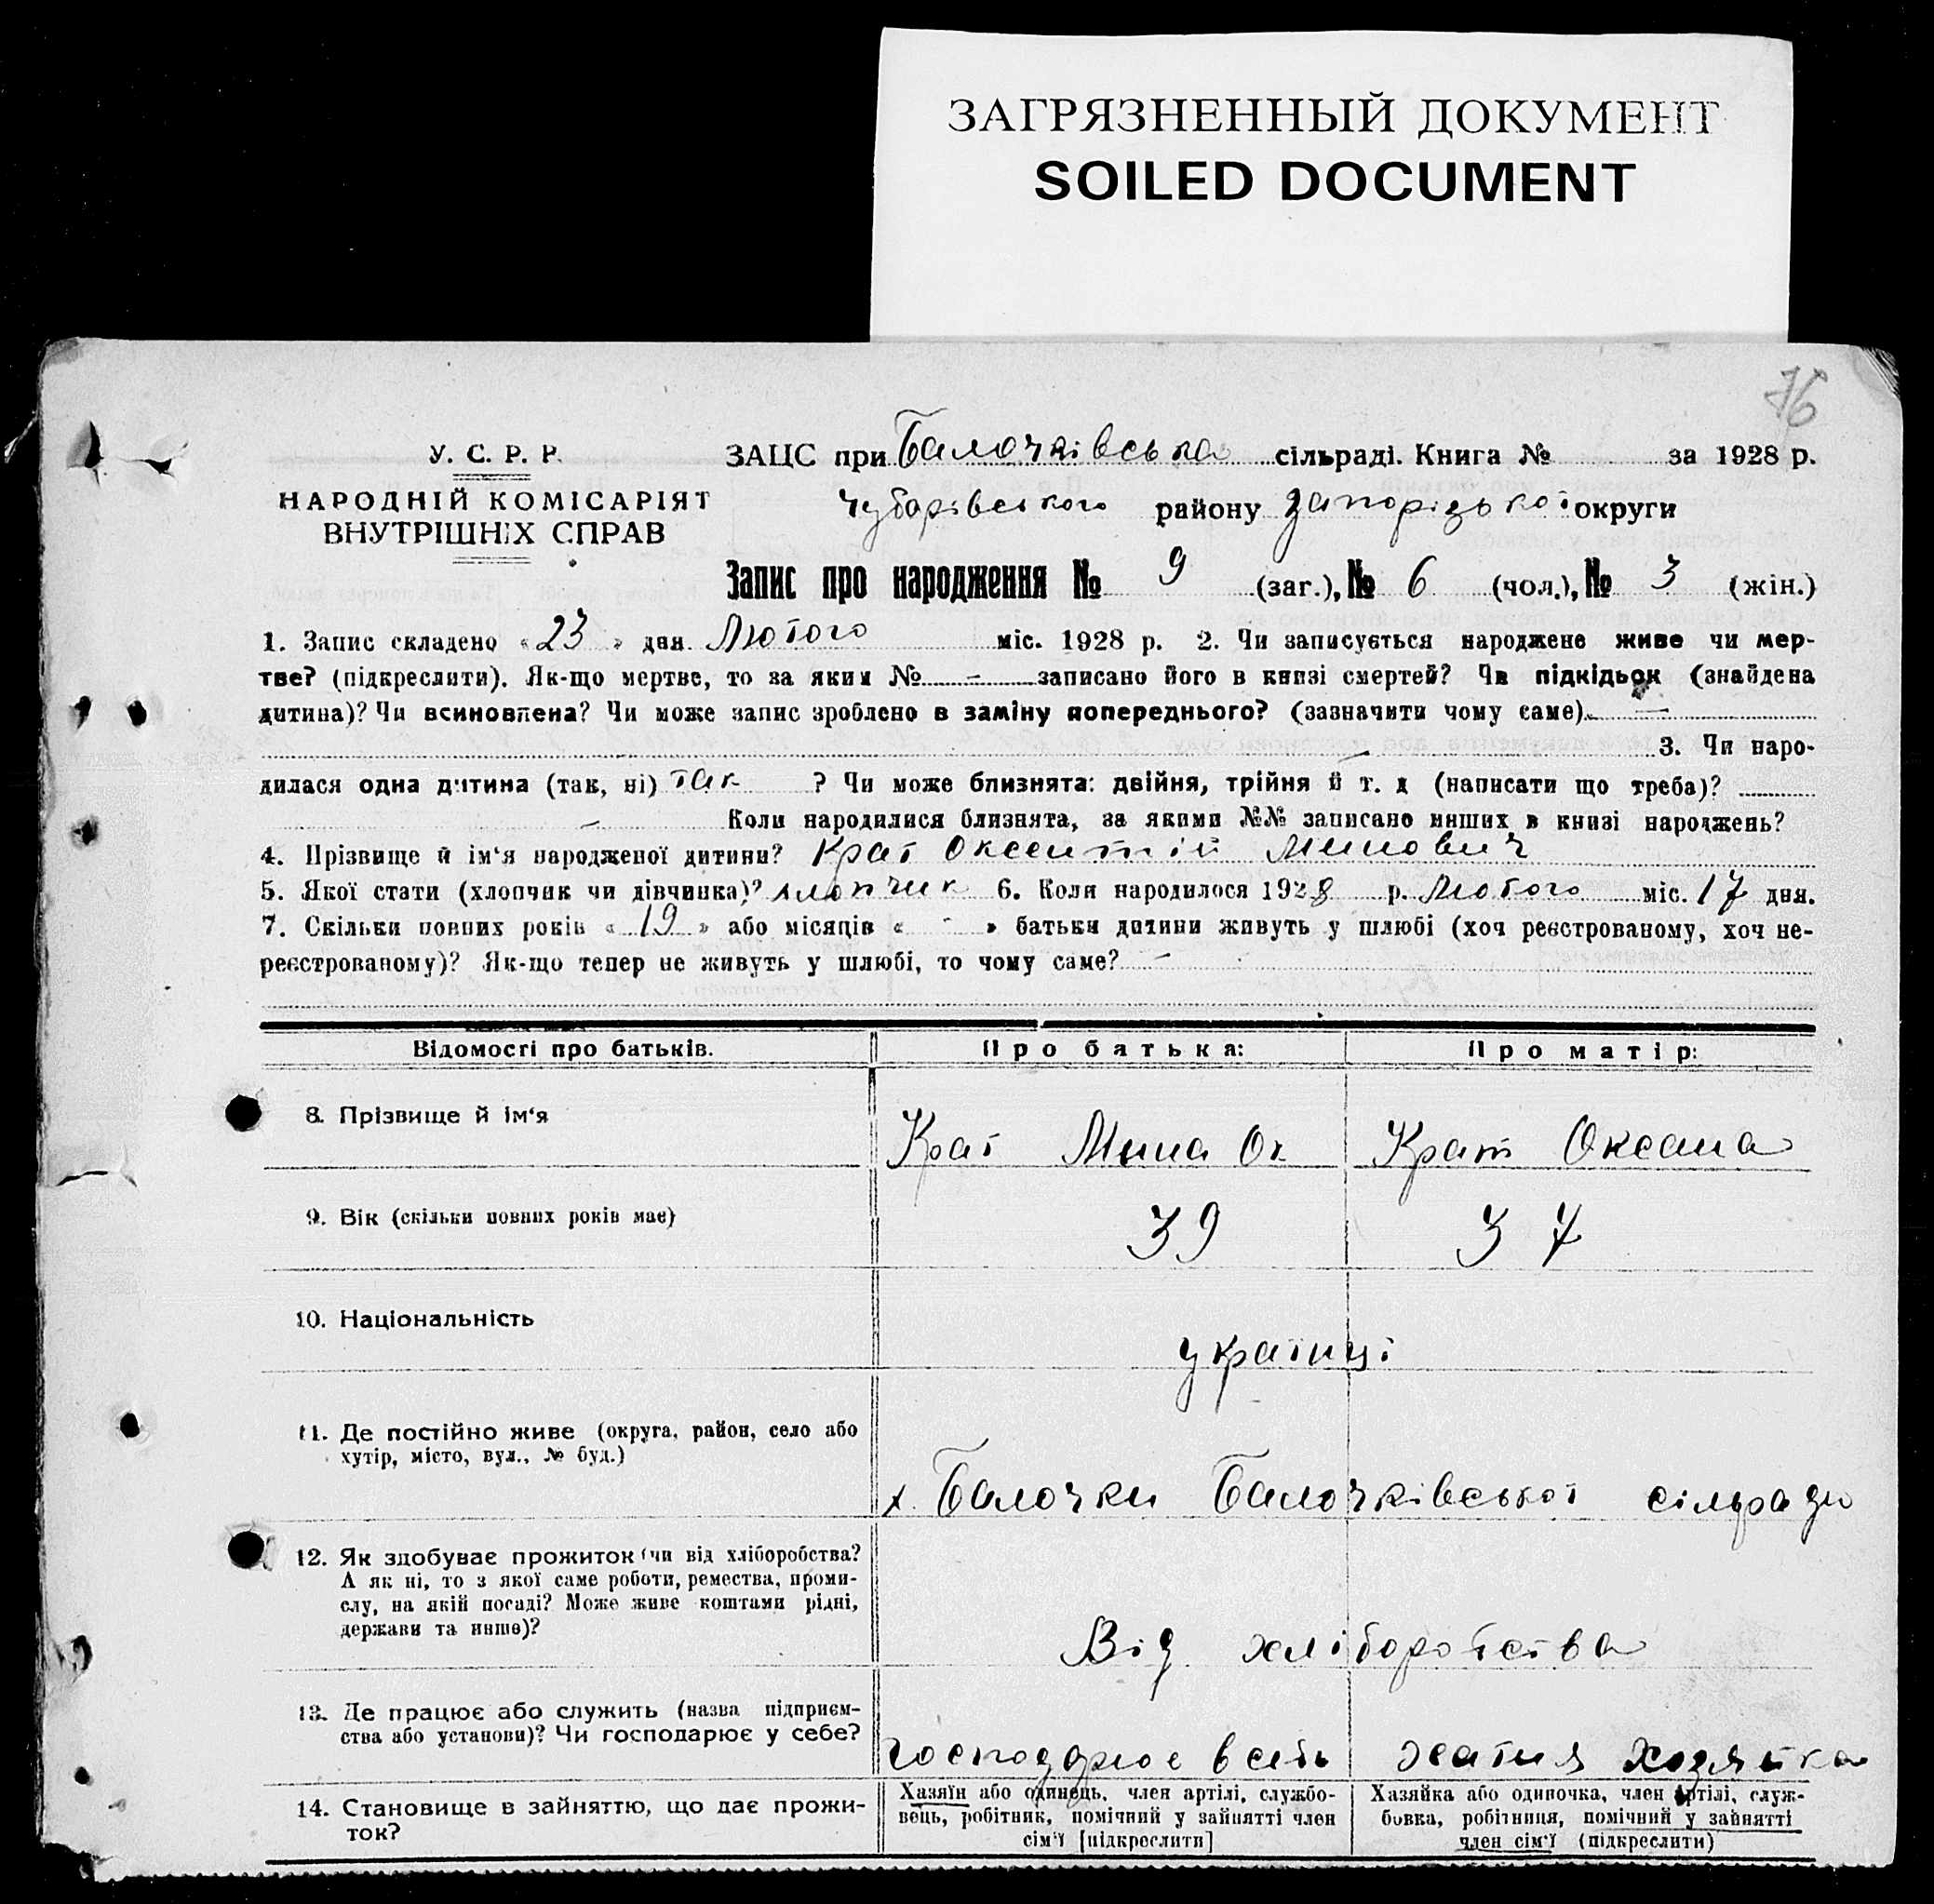 ЗАГРЯЗНЕННЫЙ ДОКУМЕНТ
SOILED DOCUMENT
76
У. С. Р. Р.
НАРОДНІЙ КОМІСАРІЯТ
ВНУТРІШНІХ СПРАВ
ЗАЦС при Балочківська сільраді. Книга № за 1928 р.
Чубарівського району Запорізької округи
Запис про народження № 9 (заг.), № 6 (чол.), № 3 (жін.)
1. Запис складено « 23 » дня Лютого міс. 1928 р. 2. Чи записується народжене живе чи мер-
тве? (підкреслити). Як-що мертве, то за яким № - записано його в книзі смертей? Чи підкідьок (знайдена
дитина)? Чи всиновлена? Чи може запис зроблено в заміну попереднього? (зазначити чому саме) —
3. Чи наро-
дилася одна дитина (так, ні) так ? Чи може близнята: двійня, трійня й т. д (написати що треба)?
— Коли народилися близнята, за якими №№ записано инших в книзі народжень?
4. Прізвище й ім‘я народженої дитини? Крат Оксентій Минович
5. Якої стати (хлопчик чи дівчинка)? хлопчик 6. Коли народилося 1928 р. Лютого міс. 17 дня.
7. Скільки повних років « 19 » або місяців « - » батьки дитини живуть у шлюбі (хоч реєстрованому, хоч не-
реєстрованому)? Як-що тепер не живуть у шлюбі, то чому саме? —
Відомості про батьків. Про батька: Про матір:
8. Прізвище й ім‘я
Крат Мина Ок Крат Оксана
9. Вік (скільки повних років має)
39 37
10. Національність
українці
11. Де постійно живе (округа, район, село або
хутір, місто, вул., № буд.)
х. Балочки Балочківської сільради
12. Як здобуває прожиток (чи від хліборобства?
А як ні, то з якої саме роботи, ремества, проми-
слу, на якій посаді? Може живе коштами рідні,
держави та инше)?
Від хліборобства
13. Де працює або служить (назва підприєм-
ства або установи)? Чи господарює у себе?
господарює в себе хатня хозяйка
14. Становище в зайняттю, що дає прожи-
ток?
Хазяїн або одинець, член артілі, службо-
вець, робітник, помічний у зайнятті член
сім‘ї [підкреслити]
Хазяйка або одиночка, член артілі, служ-
бовка, робітниця, помічний у зайнятті
член сім‘ї (підкреслити)